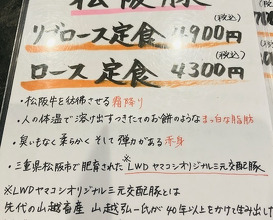 松阪豚
(税込)
リブロース定食 4,900円
(税込)
ロース 定食 4300円
・松阪牛を彷彿させる霜降り
・人の体温で溶け出すつきたてのお餅のようなまっ白な脂肪
・臭いもなく柔らかく そして 弾力がある赤身
・三重県松阪市で肥育された※LWDヤマコシオリジナル三元交配豚
※LWDヤマコシオリジナル三元交配豚とは
先代の山越畜産 山越弘一氏が40年以上をかけて生み出し